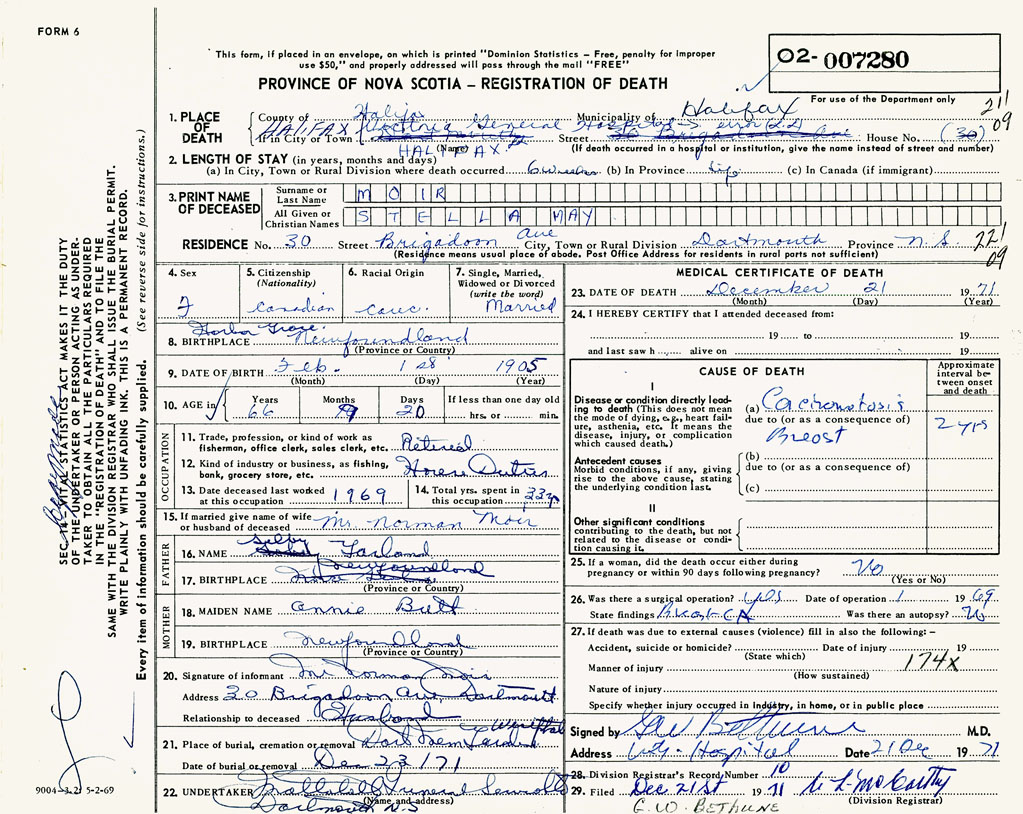 FORM 6
This form, if placed in an envelope, on which is printed "Dominion Statistics – Free, penalty for improper
use $50," and properly addressed will pass through the mail "FREE"
PROVINCE OF NOVA SCOTIA – REGISTRATION OF DEATH
02- 007280
For use of the Department only
211
09
SEC. 14 - VITAL STATISTICS ACT MAKES IT THE DUTY
OF THE UNDERTAKER OR PERSON ACTING AS UNDER-
TAKER TO OBTAIN ALL THE PARTICULARS REQUIRED
IN THE "REGISTRATION OF DEATH" AND TO FILE THE
SAME WITH THE DIVISION REGISTRAR WHO SHALL ISSUE THE BURIAL PERMIT.
WRITE PLAINLY WITH UNFADING INK. THIS IS A PERMANENT RECORD.
Every item of information should be carefully supplied. (See reverse side for instructions.)
1. PLACE OF DEATH
County of Halifax Municipality of Halifax
If in City or Town HALIFAX Victoria General Hospital Street Brigadoon Ave House No. (30)
(Name) HALIFAX (If death occurred in a hospital or institution, give the name instead of street and number)
2. LENGTH OF STAY (in years, months and days)
(a) In City, Town or Rural Division where death occurred 6 weeks (b) In Province Life (c) In Canada (if immigrant)
3. PRINT NAME OF DECEASED
Surname or Last Name MOIR
All Given or Christian Names STELLA MAY
RESIDENCE No. 30 Street Brigadoon Ave City, Town or Rural Division Dartmouth Province N.S.
(Residence means usual place of abode. Post Office Address for residents in rural parts not sufficient)
221
09
4. Sex F
5. Citizenship (Nationality) Canadian
6. Racial Origin Cauc.
7. Single, Married, Widowed or Divorced (write the word) Married
8. BIRTHPLACE Harbor Grace Newfoundland
(Province or Country)
9. DATE OF BIRTH Feb. 1st 1905
(Month) (Day) (Year)
10. AGE in Years 66 Months Days 20 If less than one day old hrs. or min.
OCCUPATION
11. Trade, profession, or kind of work as fisherman, office clerk, sales clerk, etc. Retired
12. Kind of industry or business, as fishing, bank, grocery store, etc. House Duties
13. Date deceased last worked at this occupation 1969
14. Total yrs. spent in this occupation 33 yr
15. If married give name of wife or husband of deceased Mr. Norman Moir
FATHER
16. NAME Selby Garland
17. BIRTHPLACE Newfoundland
(Province or Country)
MOTHER
18. MAIDEN NAME Annie Butt
19. BIRTHPLACE Newfoundland
(Province or Country)
20. Signature of informant Mr Norman Moir
Address 30 Brigadoon Ave, Dartmouth
Relationship to deceased Husband
21. Place of burial, cremation or removal Dart Mem
Date of burial or removal Dec 23/71
22. UNDERTAKER Funeral
(Name and address)
Dartmouth N.S
MEDICAL CERTIFICATE OF DEATH
23. DATE OF DEATH December 21 1971
(Month) (Day) (Year)
24. I HEREBY CERTIFY that I attended deceased from:
19 to 19
and last saw h alive on 19
CAUSE OF DEATH
Approximate interval between onset and death
I
Disease or condition directly leading to death (This does not mean the mode of dying, e.g., heart failure, asthenia, etc. It means the disease, injury, or complication which caused death.)
(a) Carcinomatosis
due to (or as a consequence of)
Breast
2 yrs
Antecedent causes
Morbid conditions, if any, giving rise to the above cause, stating the underlying condition last.
(b)
due to (or as a consequence of)
(c)
II
Other significant conditions
contributing to the death, but not related to the disease or condition causing it.
25. If a woman, did the death occur either during pregnancy or within 90 days following pregnancy? No
(Yes or No)
26. Was there a surgical operation? yes Date of operation 1 1969
State findings Breast CA Was there an autopsy? No
27. If death was due to external causes (violence) fill in also the following: –
Accident, suicide or homicide? Date of injury 19
(State which)
174X
Manner of injury
(How sustained)
Nature of injury
Specify whether injury occurred in Industry, in home, or in public place
Signed by GW Bethune M.D.
Address V.G. Hospital Date 21 Dec 1971
28. Division Registrar's Record Number 10
29. Filed Dec 21st 1971 McCarthy
(Division Registrar)
G.W. BETHUNE
9004-3.2: 5-2-69